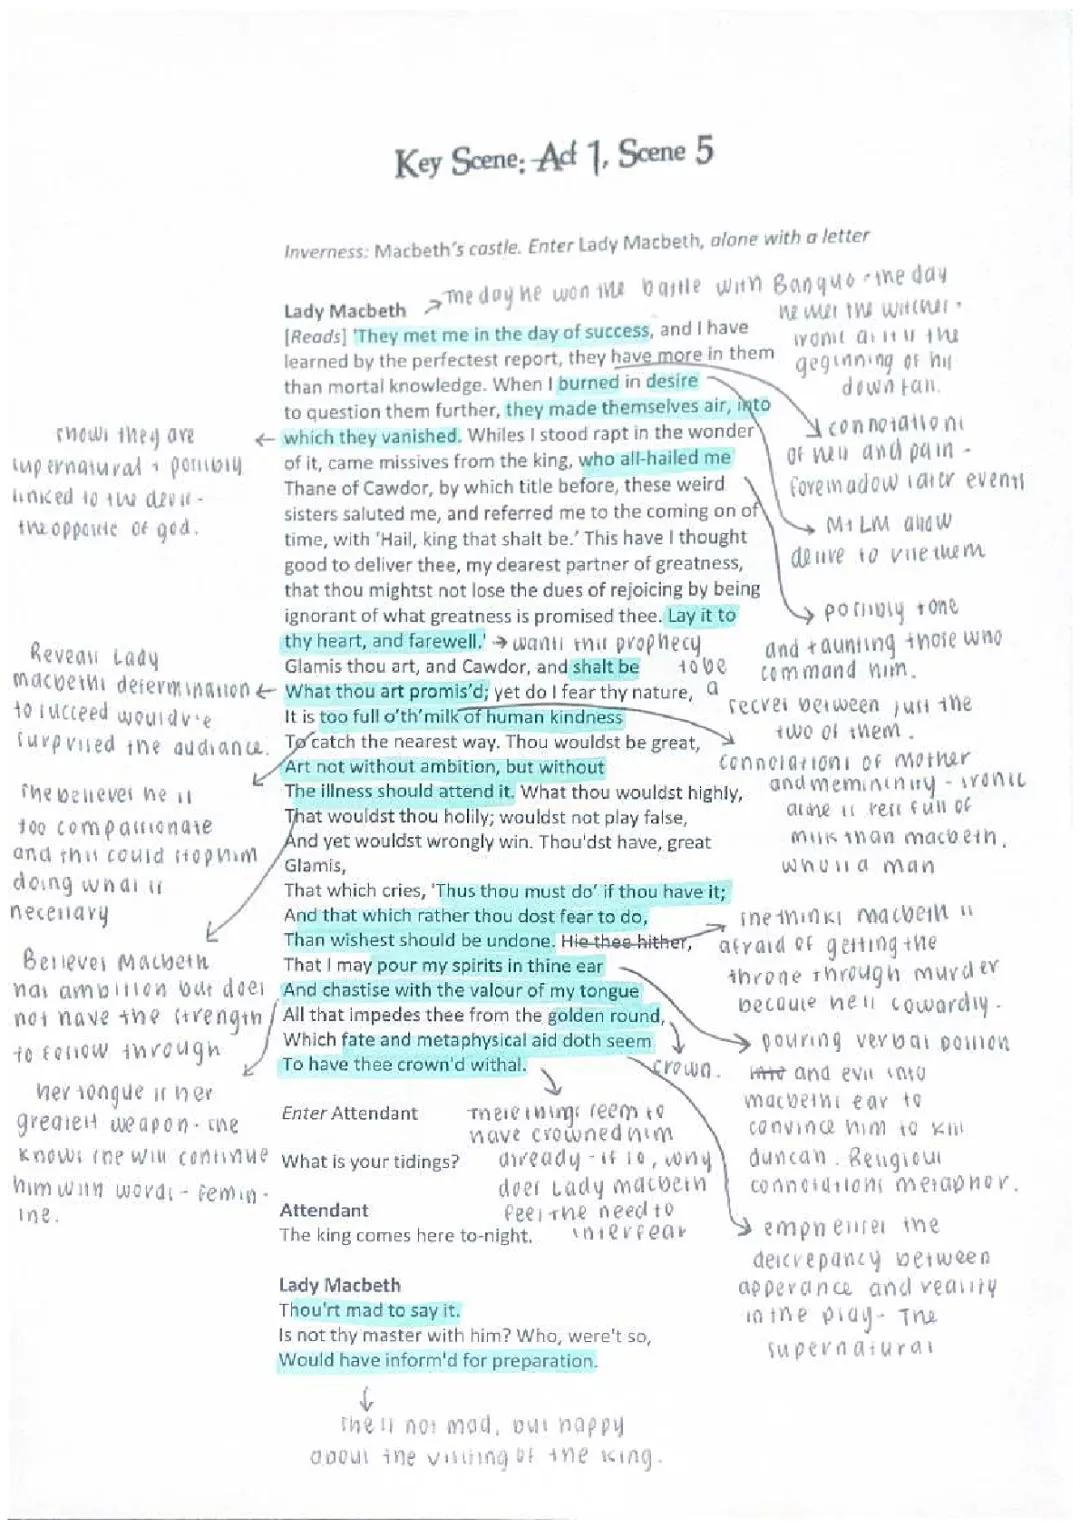 Key Scene: Act 1, Scene 5
Inverness: Macbeth's castle. Enter Lady Macbeth, alone with a letter
Lady Macbeth
[Reads] 'They met me in the day of success, and I have
learned by the perfectest report, they have more in them
than mortal knowledge. When I burned in desire
to question them further, they made themselves air, into
which they vanished. Whiles I stood rapt in the wonder
of it, came missives from the king, who all-hailed me
Thane of Cawdor, by which title before, these weird
sisters saluted me, and referred me to the coming on of
time, with 'Hail, king that shalt be.' This have I thought
good to deliver thee, my dearest partner of greatness,
that thou mightst not lose the dues of rejoicing by being
ignorant of what greatness is promised thee. Lay it to
thy heart, and farewell.'
Glamis thou art, and Cawdor, and shalt be
What thou art promis'd; yet do I fear thy nature,
It is too full o'th'milk of human kindness
To catch the nearest way. Thou wouldst be great,
Art not without ambition, but without
The illness should attend it. What thou wouldst highly,
That wouldst thou holily; wouldst not play false,
And yet wouldst wrongly win. Thou'dst have, great
Glamis,
That which cries, 'Thus thou must do' if thou have it;
And that which rather thou dost fear to do,
Than wishest should be undone. Hie thee hither,
That I may pour my spirits in thine ear
And chastise with the valour of my tongue
All that impedes thee from the golden round,
Which fate and metaphysical aid doth seem
To have thee crown'd withal.
Enter Attendant
What is your tidings?
Attendant
The king comes here to-night.
Lady Macbeth
Thou'rt mad to say it.
Is not thy master with him? Who, were't so,
Would have inform'd for preparation.
The day he won the battle with Banquo - the day
he met the witches.
ironic as it is the
geginning of his
downfall.
connotations
of hell and pain -
foreshadow later events
M + LM allow
desire to
them
possibly
and taunting those who
command him.
wants this prophecy
to be
a
secret between just the
two of them.
connotations of mother
and
- ironic
as he is
full of
milk than macbeth,
who is a man
she thinks macbeth is
afraid of getting the
throne through murder
because he is cowardly.
pouring verbal poison
into and evil into
macbeths ear to
convince him to kill
duncan. Religious
connotations metaphor.
crown.
These things seem to
have crowned him
already - if so, why
does Lady macbeth
feel the need to
interfear
emphesises the
descrepancy between
apperance and reality
in the play - The
supernatural
shows they are
supernatural + possibly
linked to the devil -
the opposite of god.
Reveals Lady
macbeths determination
to succeed
surprised the audiance.
she believes he is
too compassionate
and this could stop him
doing what is
necessary
Believes Macbeth
has ambition but does
not have the strength
to follow through
her tongue is her
greatest weapon - she
knows she will
him with words - femin-
ine.
she is not mad, but happy
about the visiting of the king.